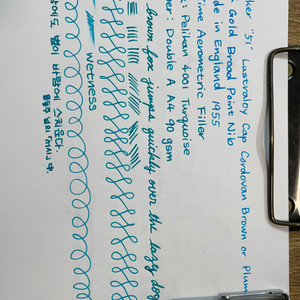 ker "51" Lustraloy Cap Cordovan Brown or Plum
Gold Broad Point Nib
de in England 1955
ime Aerometric Filler
: Pelikan 4001 Turquoise
er: Double A A4 90 gsm
brown fox jumps quickly over the lazy dog
wetness
별이 바람에 스치운다.
윤동주 님의 「서시」 中.